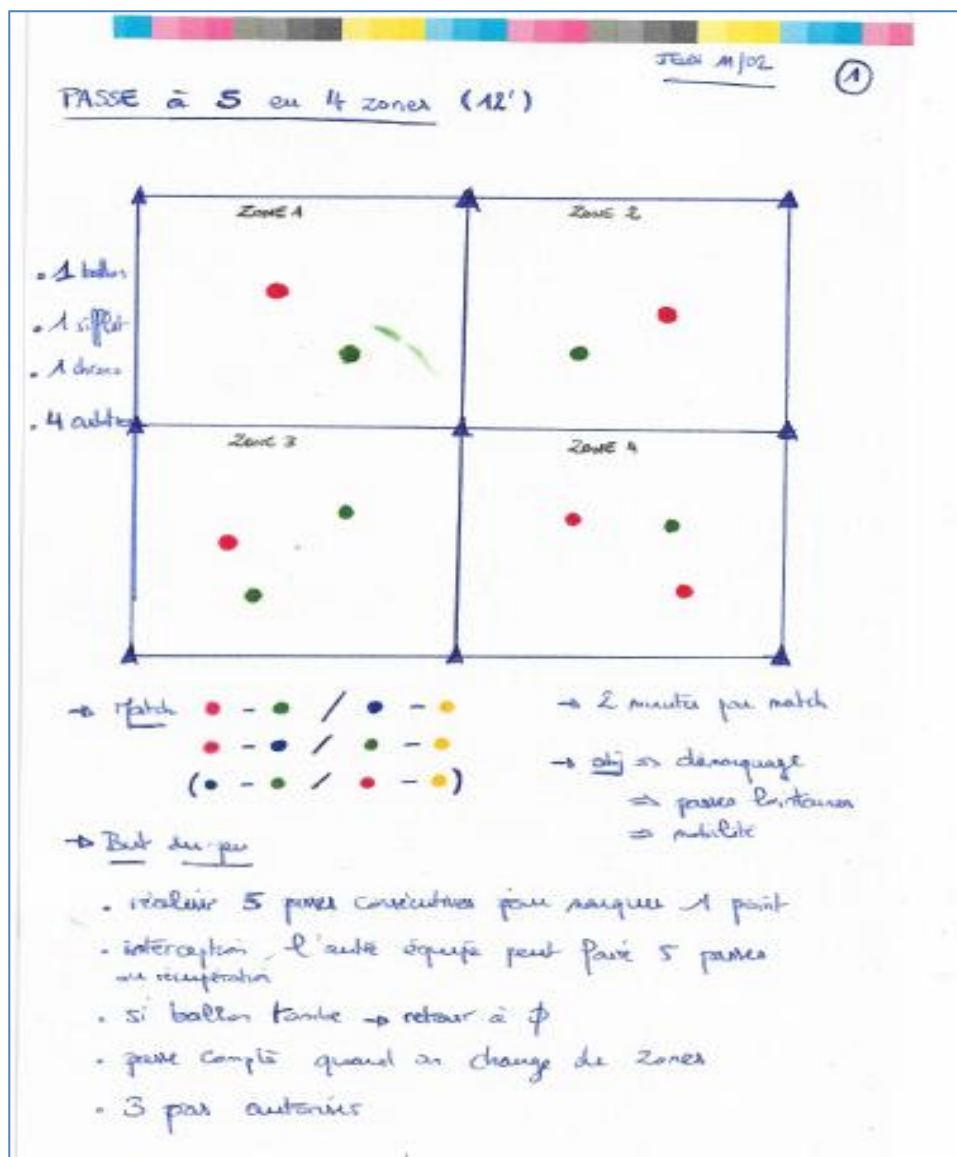 JEUDI 11/02
1
PASSE à 5 en 4 zones (12')
ZONE 1
ZONE 2
. 1 ballon
. 1 sifflet
. 1 chrono
. 4
ZONE 3
ZONE 4
→ Match - / -
- / -
( - / - )
→ 2 minutes par match
→ obj => démarquage
=> passes lointaines
=> mobilité
→ But du jeu
. réaliser 5 passes consécutives pour marquer 1 point
. interception, l'autre équipe peut faire 5 passes
ou récupération
. si ballon tombe → retour à 0
. passe compte quand on change de zones
. 3 pas autorisés